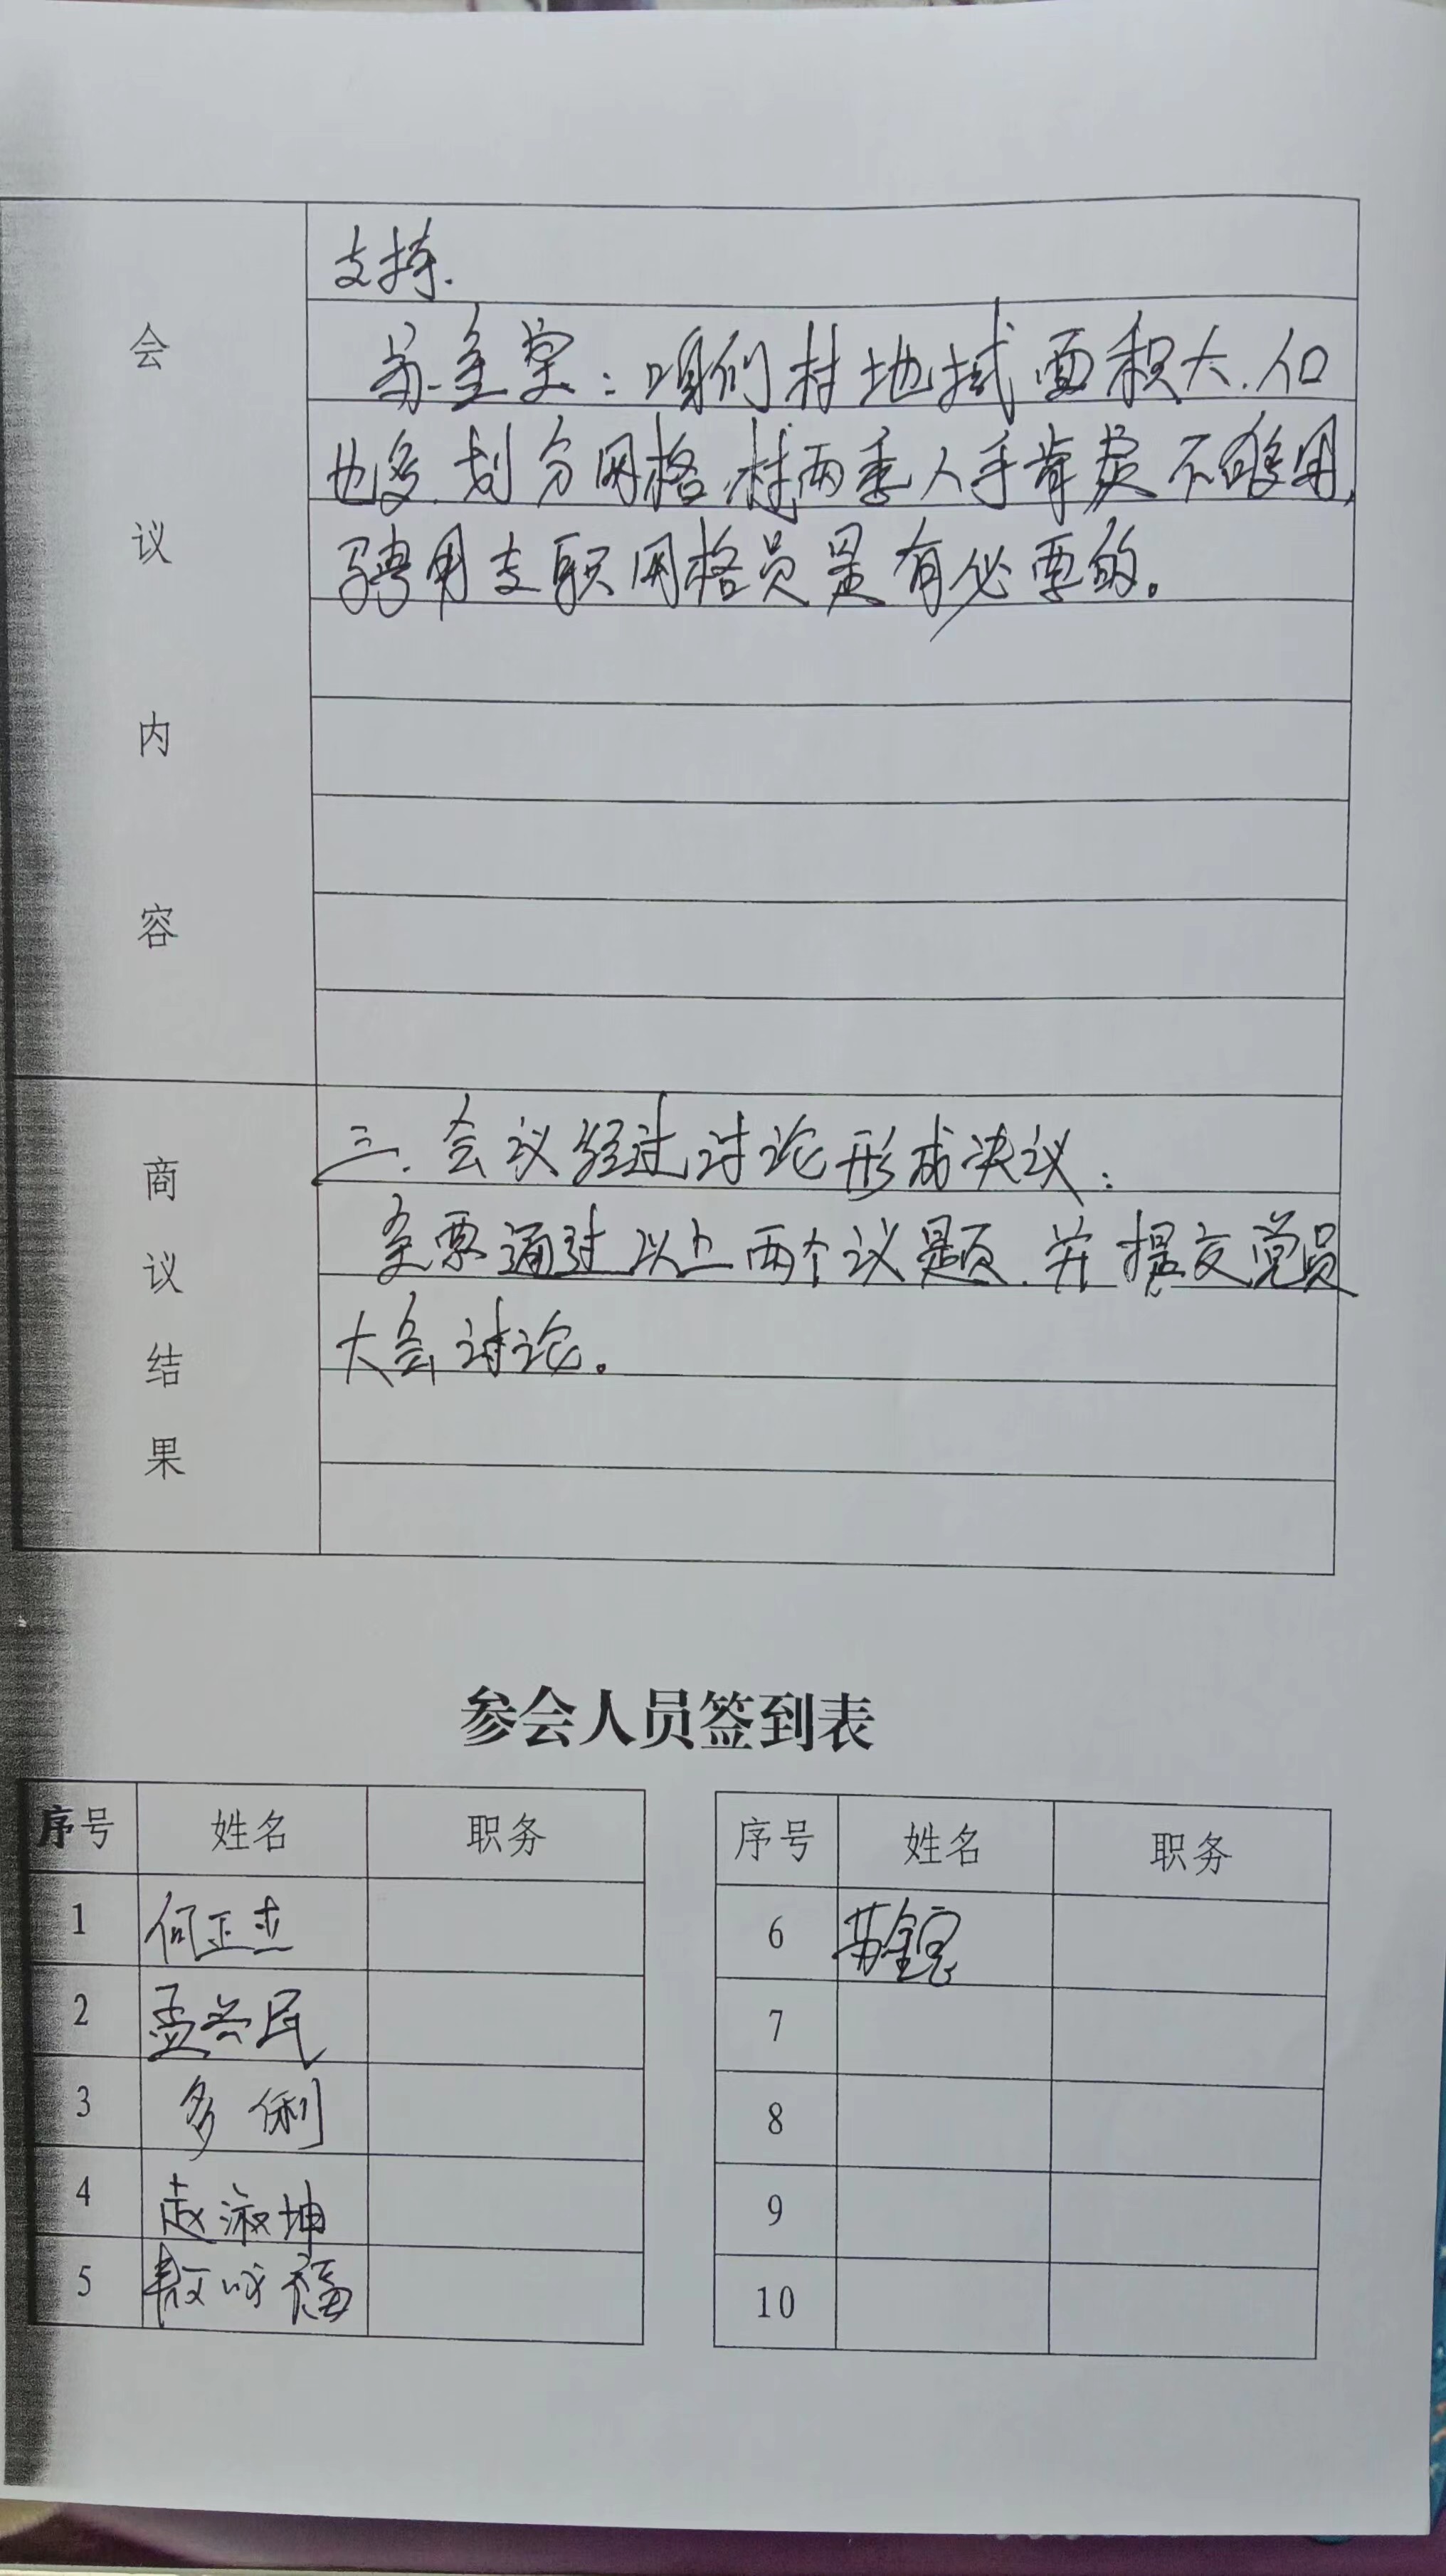 会议内容
支持.
苏金宝：咱们村地域面积大.人口
也多.划分网格,村两委人手肯定不够用,
聘用专职网格员是有必要的。
商议结果
三.会议经过讨论形成决议：
全票通过以上两个议题.并提交党员
大会讨论。
参会人员签到表
序号 姓名 职务 序号 姓名 职务
1 何正杰 6 苏金宝
2 孟兴民 7
3 多俐 8
4 赵淑坤 9
5 敖咏福 10